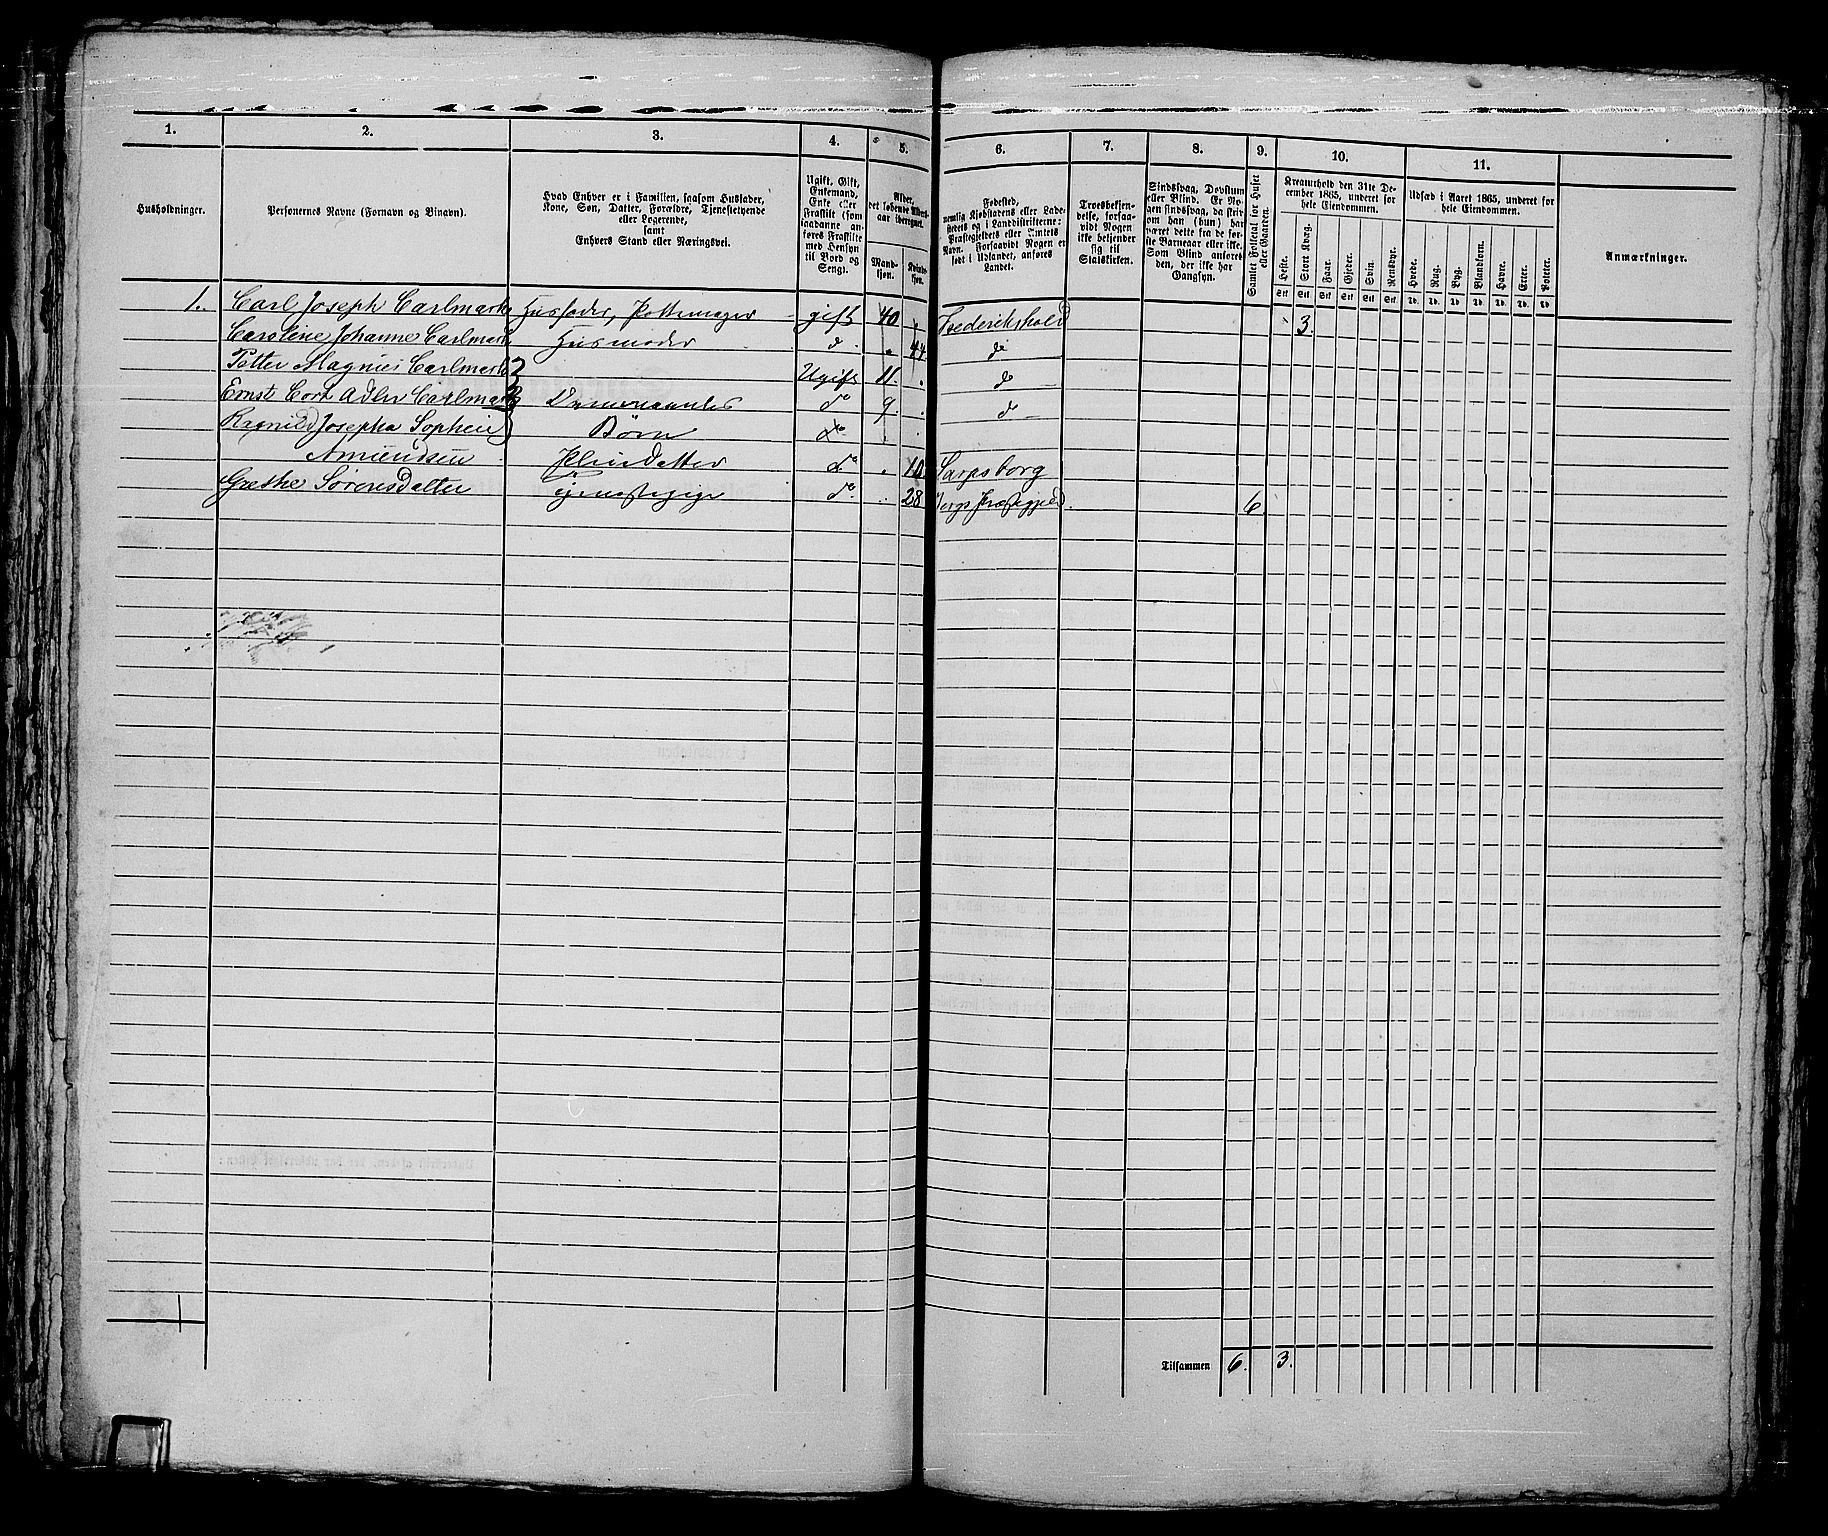 1. 2. 3. 4. 5. 6. 7. 8. 9. 10. 11.
Husholdninger.
Personernes Navne (Fornavn og Binavn).
Hvad Enhver er i Familien, saasom Husfader,
Kone, Søn, Datter, Forældre, Tjenestetyende
eller Logerende,
samt
Enhvers Stand eller Næringsvei.
Ugift, Gift,
Enkemand,
Enke eller
Fraskilt (som
saadanne an-
føres Fraskilte
med Hensyn
til Bord og
Seng).
Alder,
det løbende Alders-
aar iberegnet.
Mand-
kjøn.
Kvinde-
kjøn.
Fødested,
nemlig Kjøbstadens eller Lade-
stedets og i Landdistrikterne:
Præstegjeldets eller Amtets
Navn. Forsaavidt Nogen er
født i Udlandet, anføres
Landet.
Troesbekjen-
delse, forsaa-
vidt Nogen
ikke bekjender
sig til
Statskirken.
Sindssvag, Døvstum
eller Blind. Er No-
gen sindssvag, da skriv
om han (hun) har
været dette fra de før-
ste Barneaar eller ikke.
Som Blind anføres
den, der ikke har
Gangsyn.
Samlet Folketal for Huset
eller Gaarden.
Kreaturhold den 31te De-
cember 1865, underet for
hele Eiendommen.
Heste. Stort Kvæg. Faar. Gjeder. Svin. Rensdyr.
Stk Stk Stk Stk Stk Stk
Udsæd i Aaret 1865, underet for
hele Eiendommen.
Hvede. Rug. Byg. Blandkorn. Havre. Erter. Poteter.
Anmærkninger.
1. Carl Joseph Carlmark Husfader, Pottemager gift 40 . Frederikshald 3.
Caroline Johanne Carlmark Husmoder do . 44. do
Petter Magnus Carlmark Ugift 11. . do
Ernst Cort Adler Carlmark do 9. . do
Ragnild Josepha Sophie Børn do
Amundsen Pleiedatter do . 10. Sarpsborg
Grethe Sørensdatter Tjenestepige do . 28 Bergs Præstegjeld. 6
Tilsammen 6. 3.